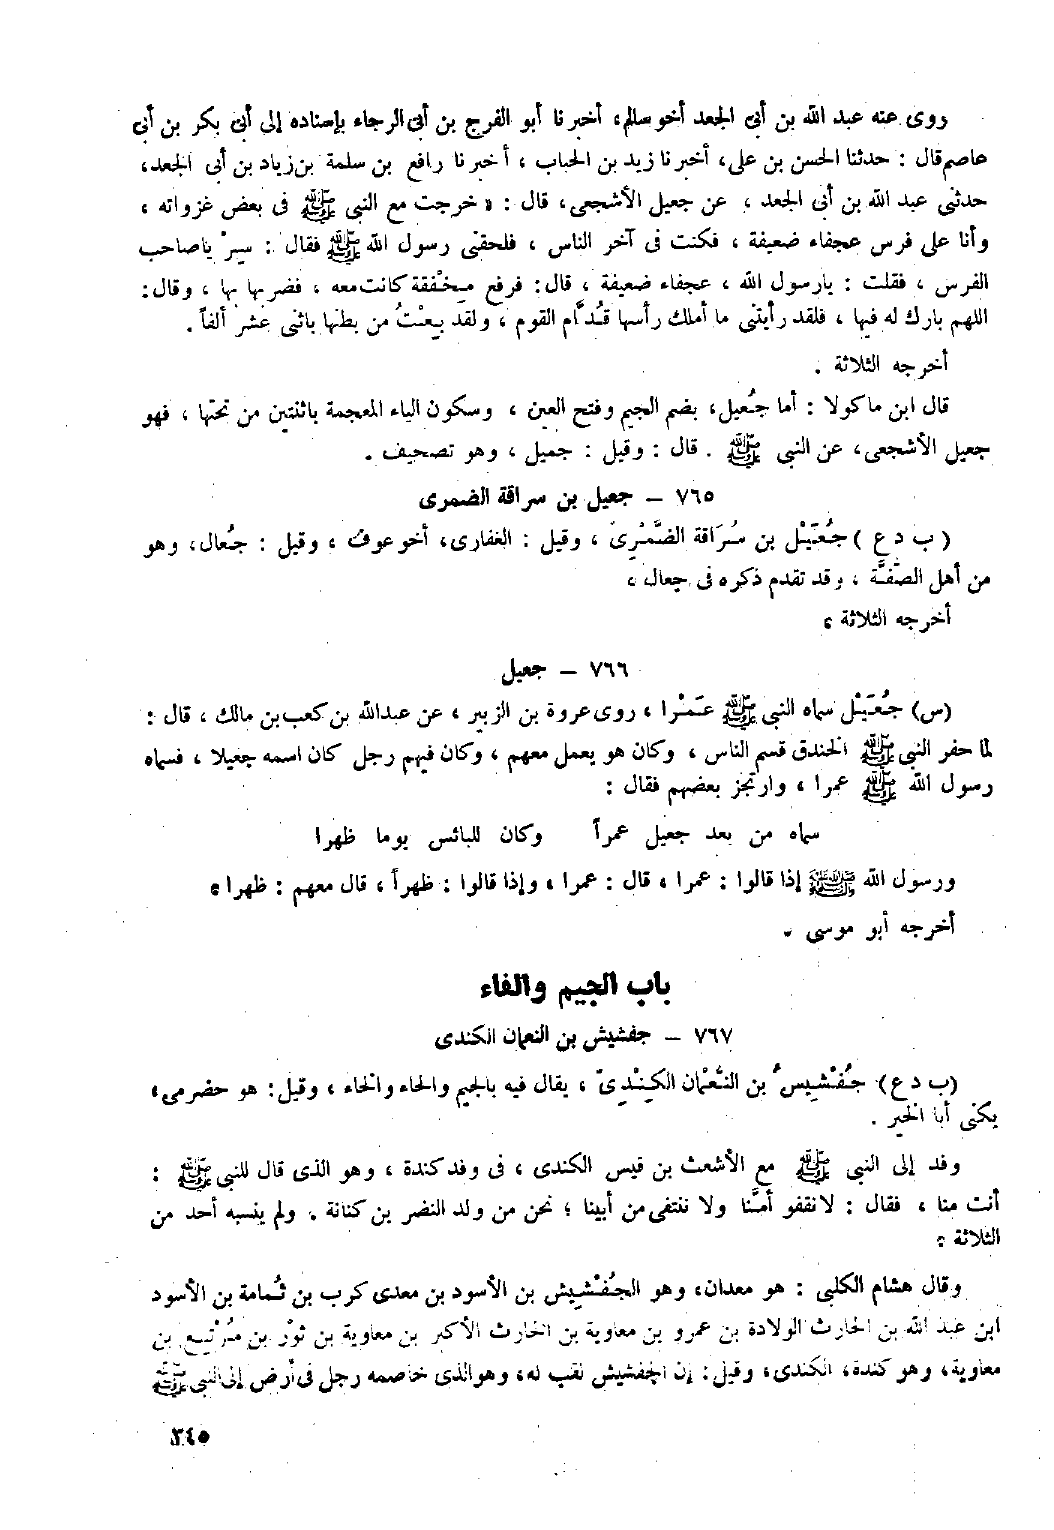 روى عنه عبد الله بن أبى الجعد أخو سالم، أخبرنا أبو الفرج بن أبى الرجاء بإسناده إلى أبى بكر بن أبى
عاصم قال : حدثنا الحسن بن على، أخبرنا زيد بن الحباب ، أخبرنا رافع بن سلمة بن زياد بن أبى الجعد،
حدثنى عبد الله بن أبى الجعد ، عن جعيل الأشجعى، قال : « خرجت مع النبى ﷺ فى بعض غزواته ،
وأنا على فرس عجفاء ضعيفة ، فكنت فى آخر الناس ، فلحقنى رسول الله ﷺ فقال : سِيرْ ياصاحب
الفرس ، فقلت : يارسول الله ، عجفاء ضعيفة ، قال: فرفع مِخْفقة كانت معه ، فضربها بها ، وقال:
اللهم بارك له فيها ، فلقد رأيتنى ما أملك رأسها قُدَّام القوم ، ولقد بِعْتُ من بطنها باثنى عشر ألفاً .
أخرجه الثلاثة .
قال ابن ماكولا : أما جُعيل، بضم الجيم وفتح العين ، وسكون الياء المعجمة باثنتين من تحتها ، فهو
جعيل الأشجعى، عن النبى ﷺ . قال : وقيل : جميل ، وهو تصحيف .
٧٦٥ – جعيل بن سراقة الضمرى
( ب د ع ) جُعَيْل بن سُرَاقة الضَّمْرِىّ ، وقيل : الغفارى، أخو عوف ، وقيل : جُعال، وهو
من أهل الصُّفَّة ، وقد تقدم ذكره فى جعال ،
أخرجه الثلاثة ،
٧٦٦ – جعيل
(س) جُعَيْل سماه النبى ﷺ عَمْرا ، روى عروة بن الزبير ، عن عبدالله بن كعب بن مالك ، قال :
لما حفر النبى ﷺ الخندق قسم الناس ، وكان هو يعمل معهم ، وكان فيهم رجل كان اسمه جعيلا ، فسماه
رسول الله ﷺ عمرا ، وارتجز بعضهم فقال :
سماه من بعد جعيل عمراً وكان للبائس يوما ظهرا
ورسول الله ﷺ إذا قالوا : عمرا ، قال : عمرا ، وإذا قالوا : ظهراً ، قال معهم : ظهرا ،
أخرجه أبو موسى .
باب الجيم والفاء
٧٦٧ – جفشيش بن النعمان الكندى
(ب د ع) جُفْشِيسُ بن النُّعْمان الكِنْدِىّ ، يقال فيه بالجيم والحاء والخاء ، وقيل: هو حضرمى،
يكنى أبا الخير .
وفد إلى النبى ﷺ مع الأشعث بن قيس الكندى ، فى وفد كندة ، وهو الذى قال للنبى ﷺ :
أنت منا ، فقال : لا نقفو أمنَّا ولا ننتفى من أبينا ؛ نحن من ولد النضر بن كنانة . ولم ينسبه أحد من
الثلاثة ،
وقال هشام الكلبى : هو معدان، وهو الجُفْشِيش بن الأسود بن معدى كرب بن ثُمامة بن الأسود
ابن عبد الله بن الحارث الولادة بن عمرو بن معاوية بن الحارث الأكبر بن معاوية بن ثوْر بن مُرْتِيع بن
معاوية، وهو كندة، الكندى، وقيل: إن الجفشيش لقب له، وهو الذى خاصمه رجل فى أرض إلى النبى ﷺ
٣٤٥